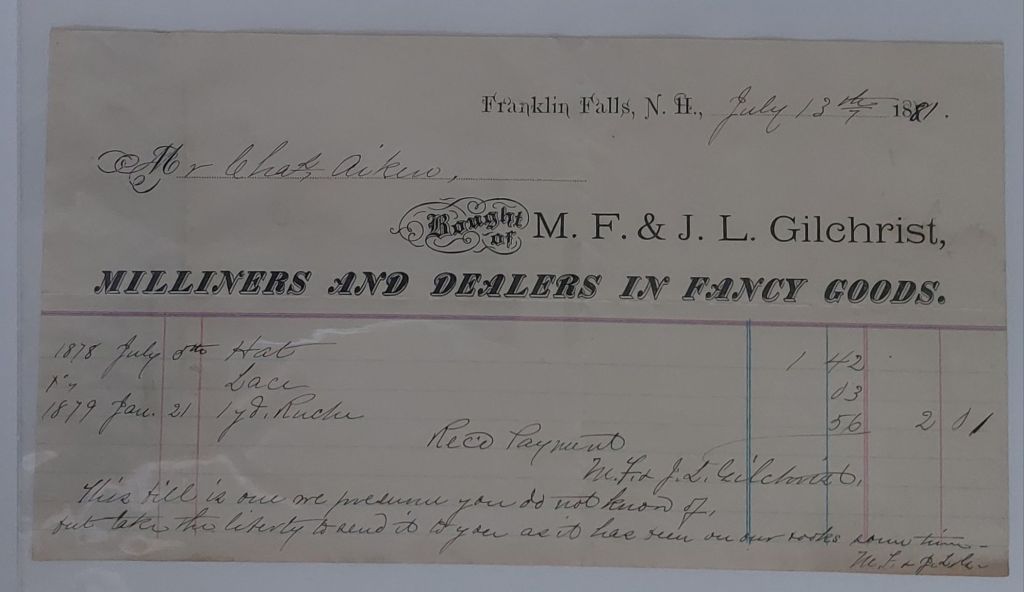 Franklin Falls, N. H., July 13th 1881.
Mr Chas. Aiken,
Bought of M. F. & J. L. Gilchrist,
MILLINERS AND DEALERS IN FANCY GOODS.
1878 July 5th Hat 1 42
Lace 03
1879 Jan. 21 1 yd. Ruche 56 2 01
Recd Payment
M. F. & J. L. Gilchrist,
This bill is one we presume you do not know of,
but take the liberty to send it to you as it has been on our books some time-
M. F. & J. L. G-